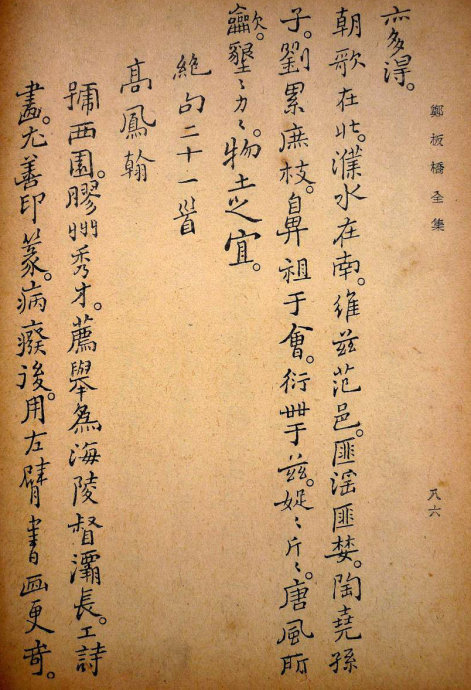 鄭板橋全集
亦多淂。
朝歌在北。濮水在南。維茲范邑。匪淫匪婪。陶堯孫
子。劉累庶枝。鼻祖于會。衍世于茲。娖〻斤〻。唐風所
龡。墾〻力〻。物土之宜。
絕句二十一首
高鳳翰
號西園。膠州秀才。薦舉為海陵督灞長。工詩
畫。尤善印篆。病廢後。用左臂書画更奇。
八六